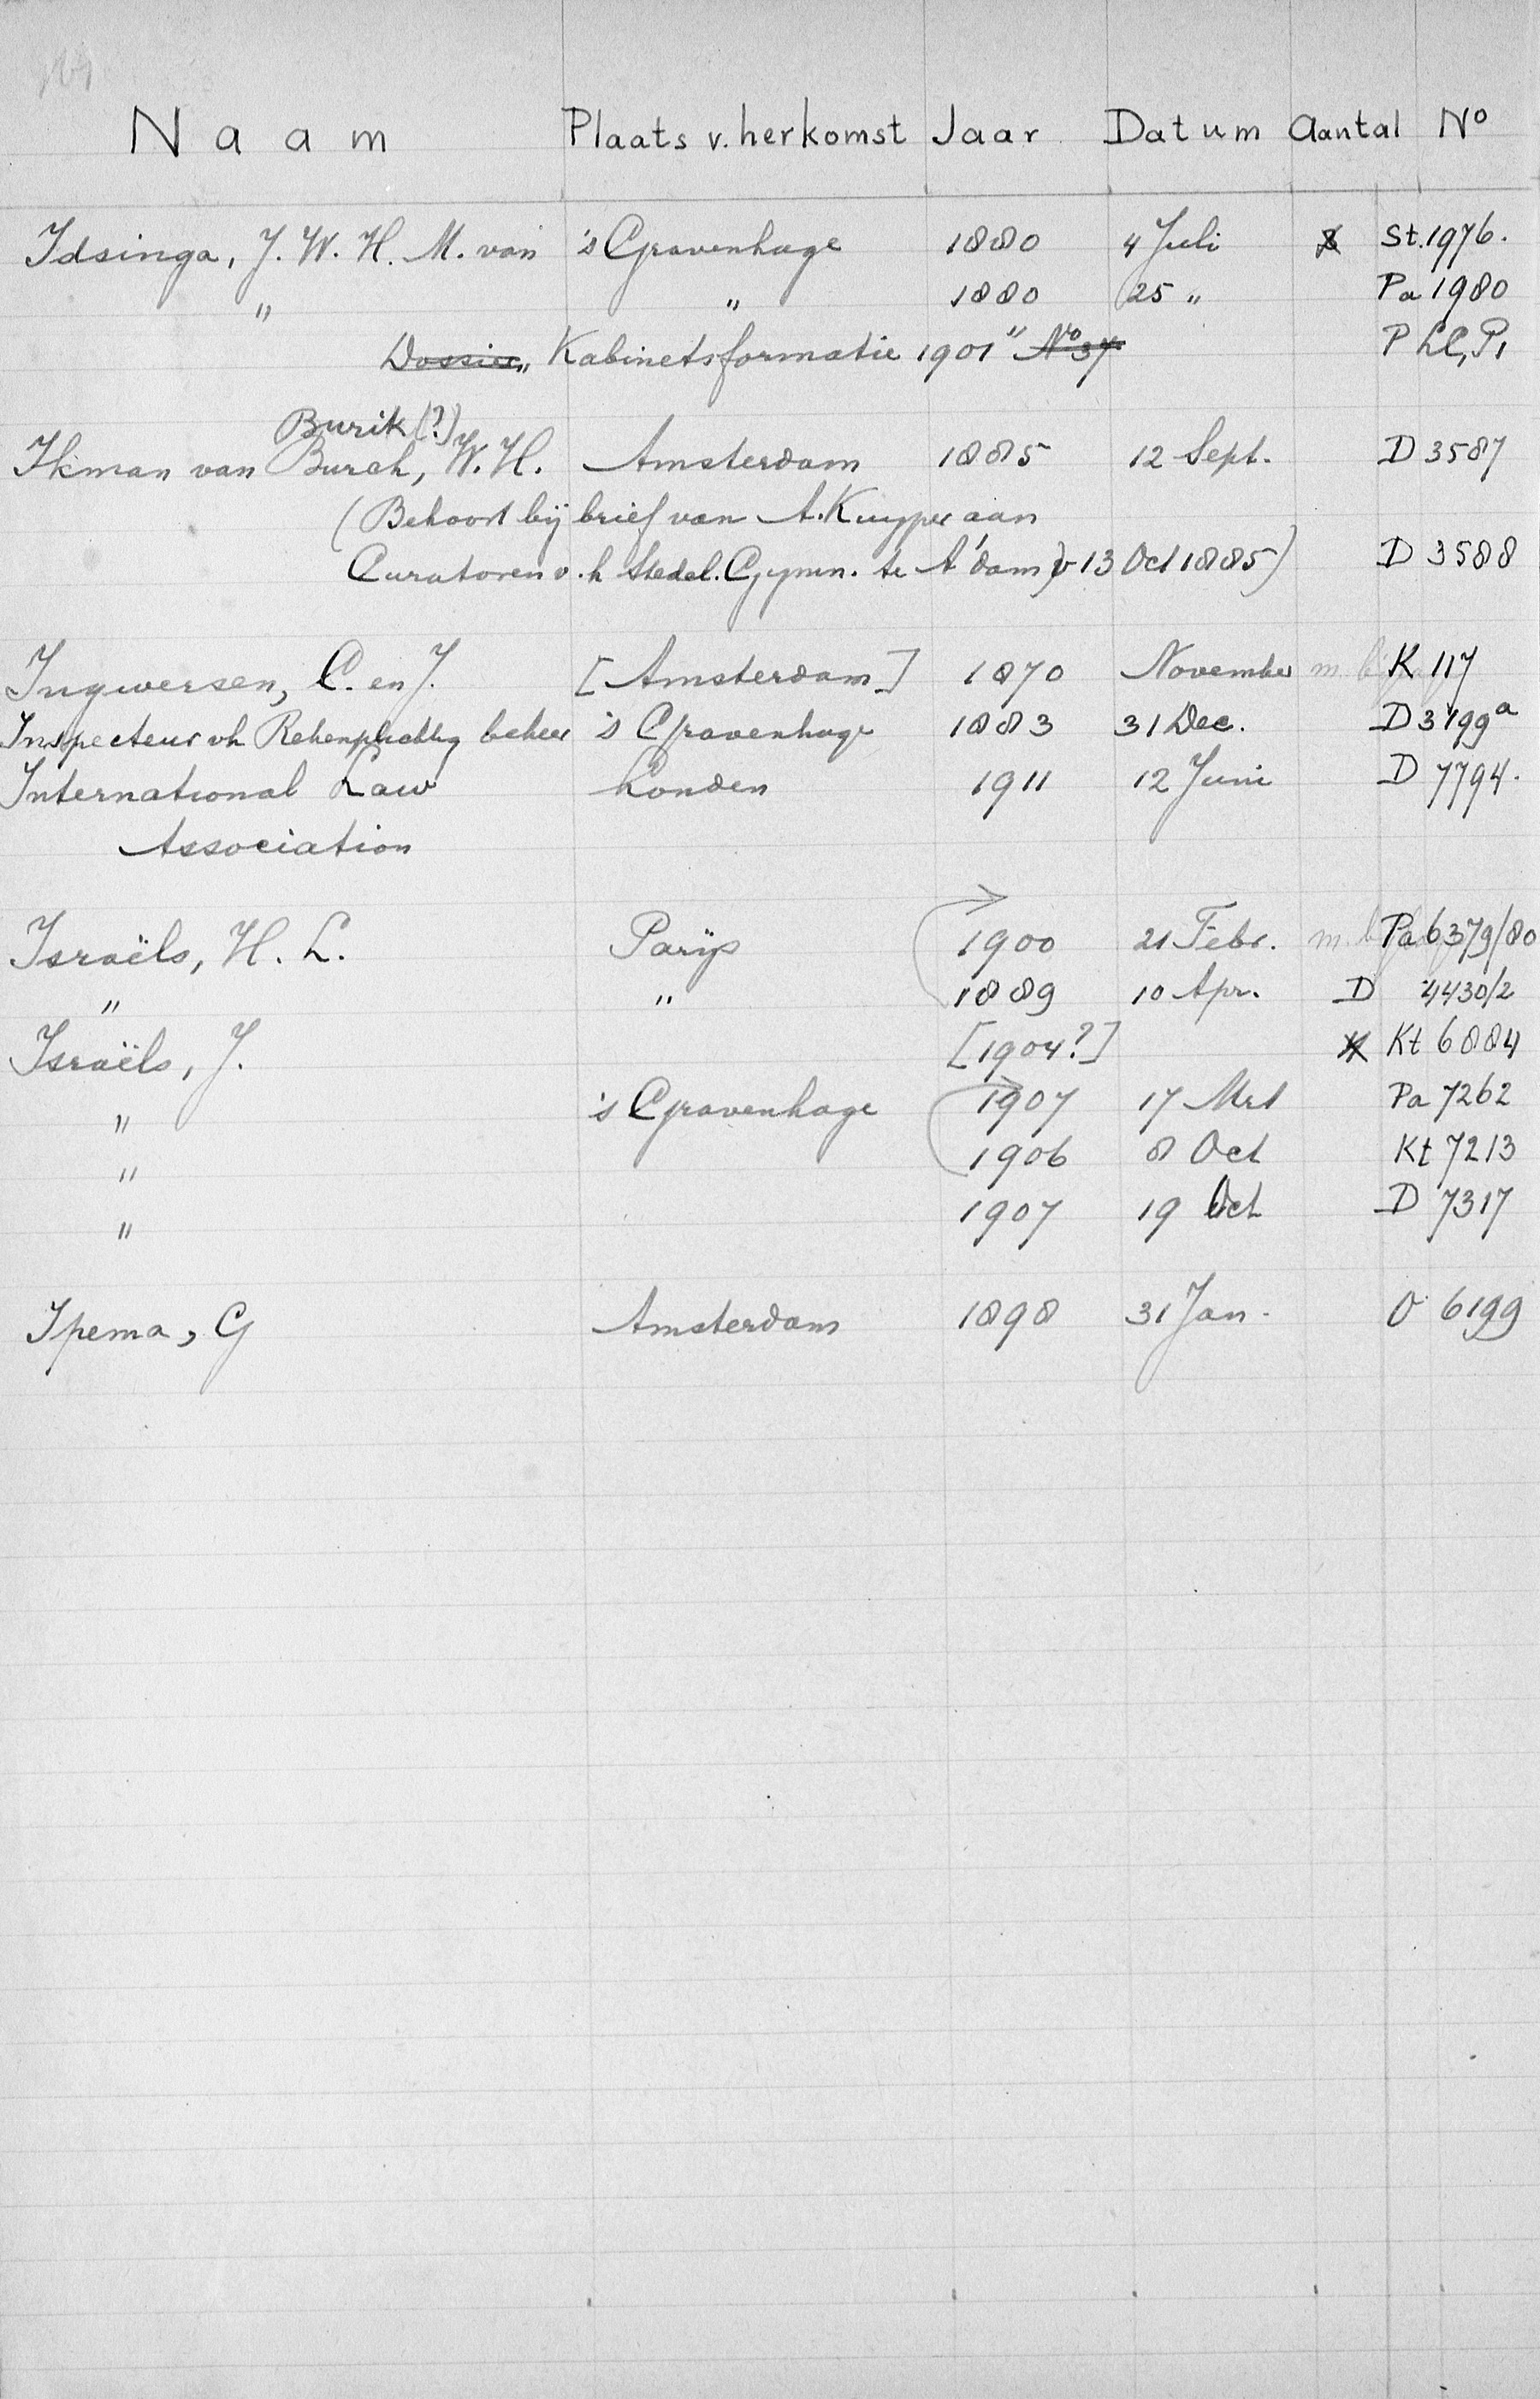 Naam Plaats v. herkomst Jaar Datum Aantal No
Idsinga, J. W. H. M. van 's Gravenhage 1880 4 Juli St. 1976.
" " 1880 25 " Pa 1980
Dossier „Kabinetsformatie 1901" No 37 P
Burik (?)
Ikman van Burch, W. H. Amsterdam 1885 12 Sept. D 3587
(Behoort bij brief van A. Kuyper aan
Curatoren v. h Stedel. Gymn. te A'dam) v 13 Oct 1885) D 3588
Ingwersen, C. en J. [Amsterdam] 1870 November K 117
Inspecteur vh beheer 's Gravenhage 1883 31 Dec. D 3199a
International Law Londen 1911 12 Juni D 7794.
Association
Israëls, H. L. Parijs 1900 21 Febr. Pa 6379/80
" " 1889 10 Apr. D 4430/2
Israëls, J. [1904?] Kt 6884
" 's Gravenhage 1907 17 Mrt Pa 7262
" 1906 8 Oct Kt 7213
" 1907 19 Oct D 7317
Ipema, G Amsterdam 1898 31 Jan. O 6199